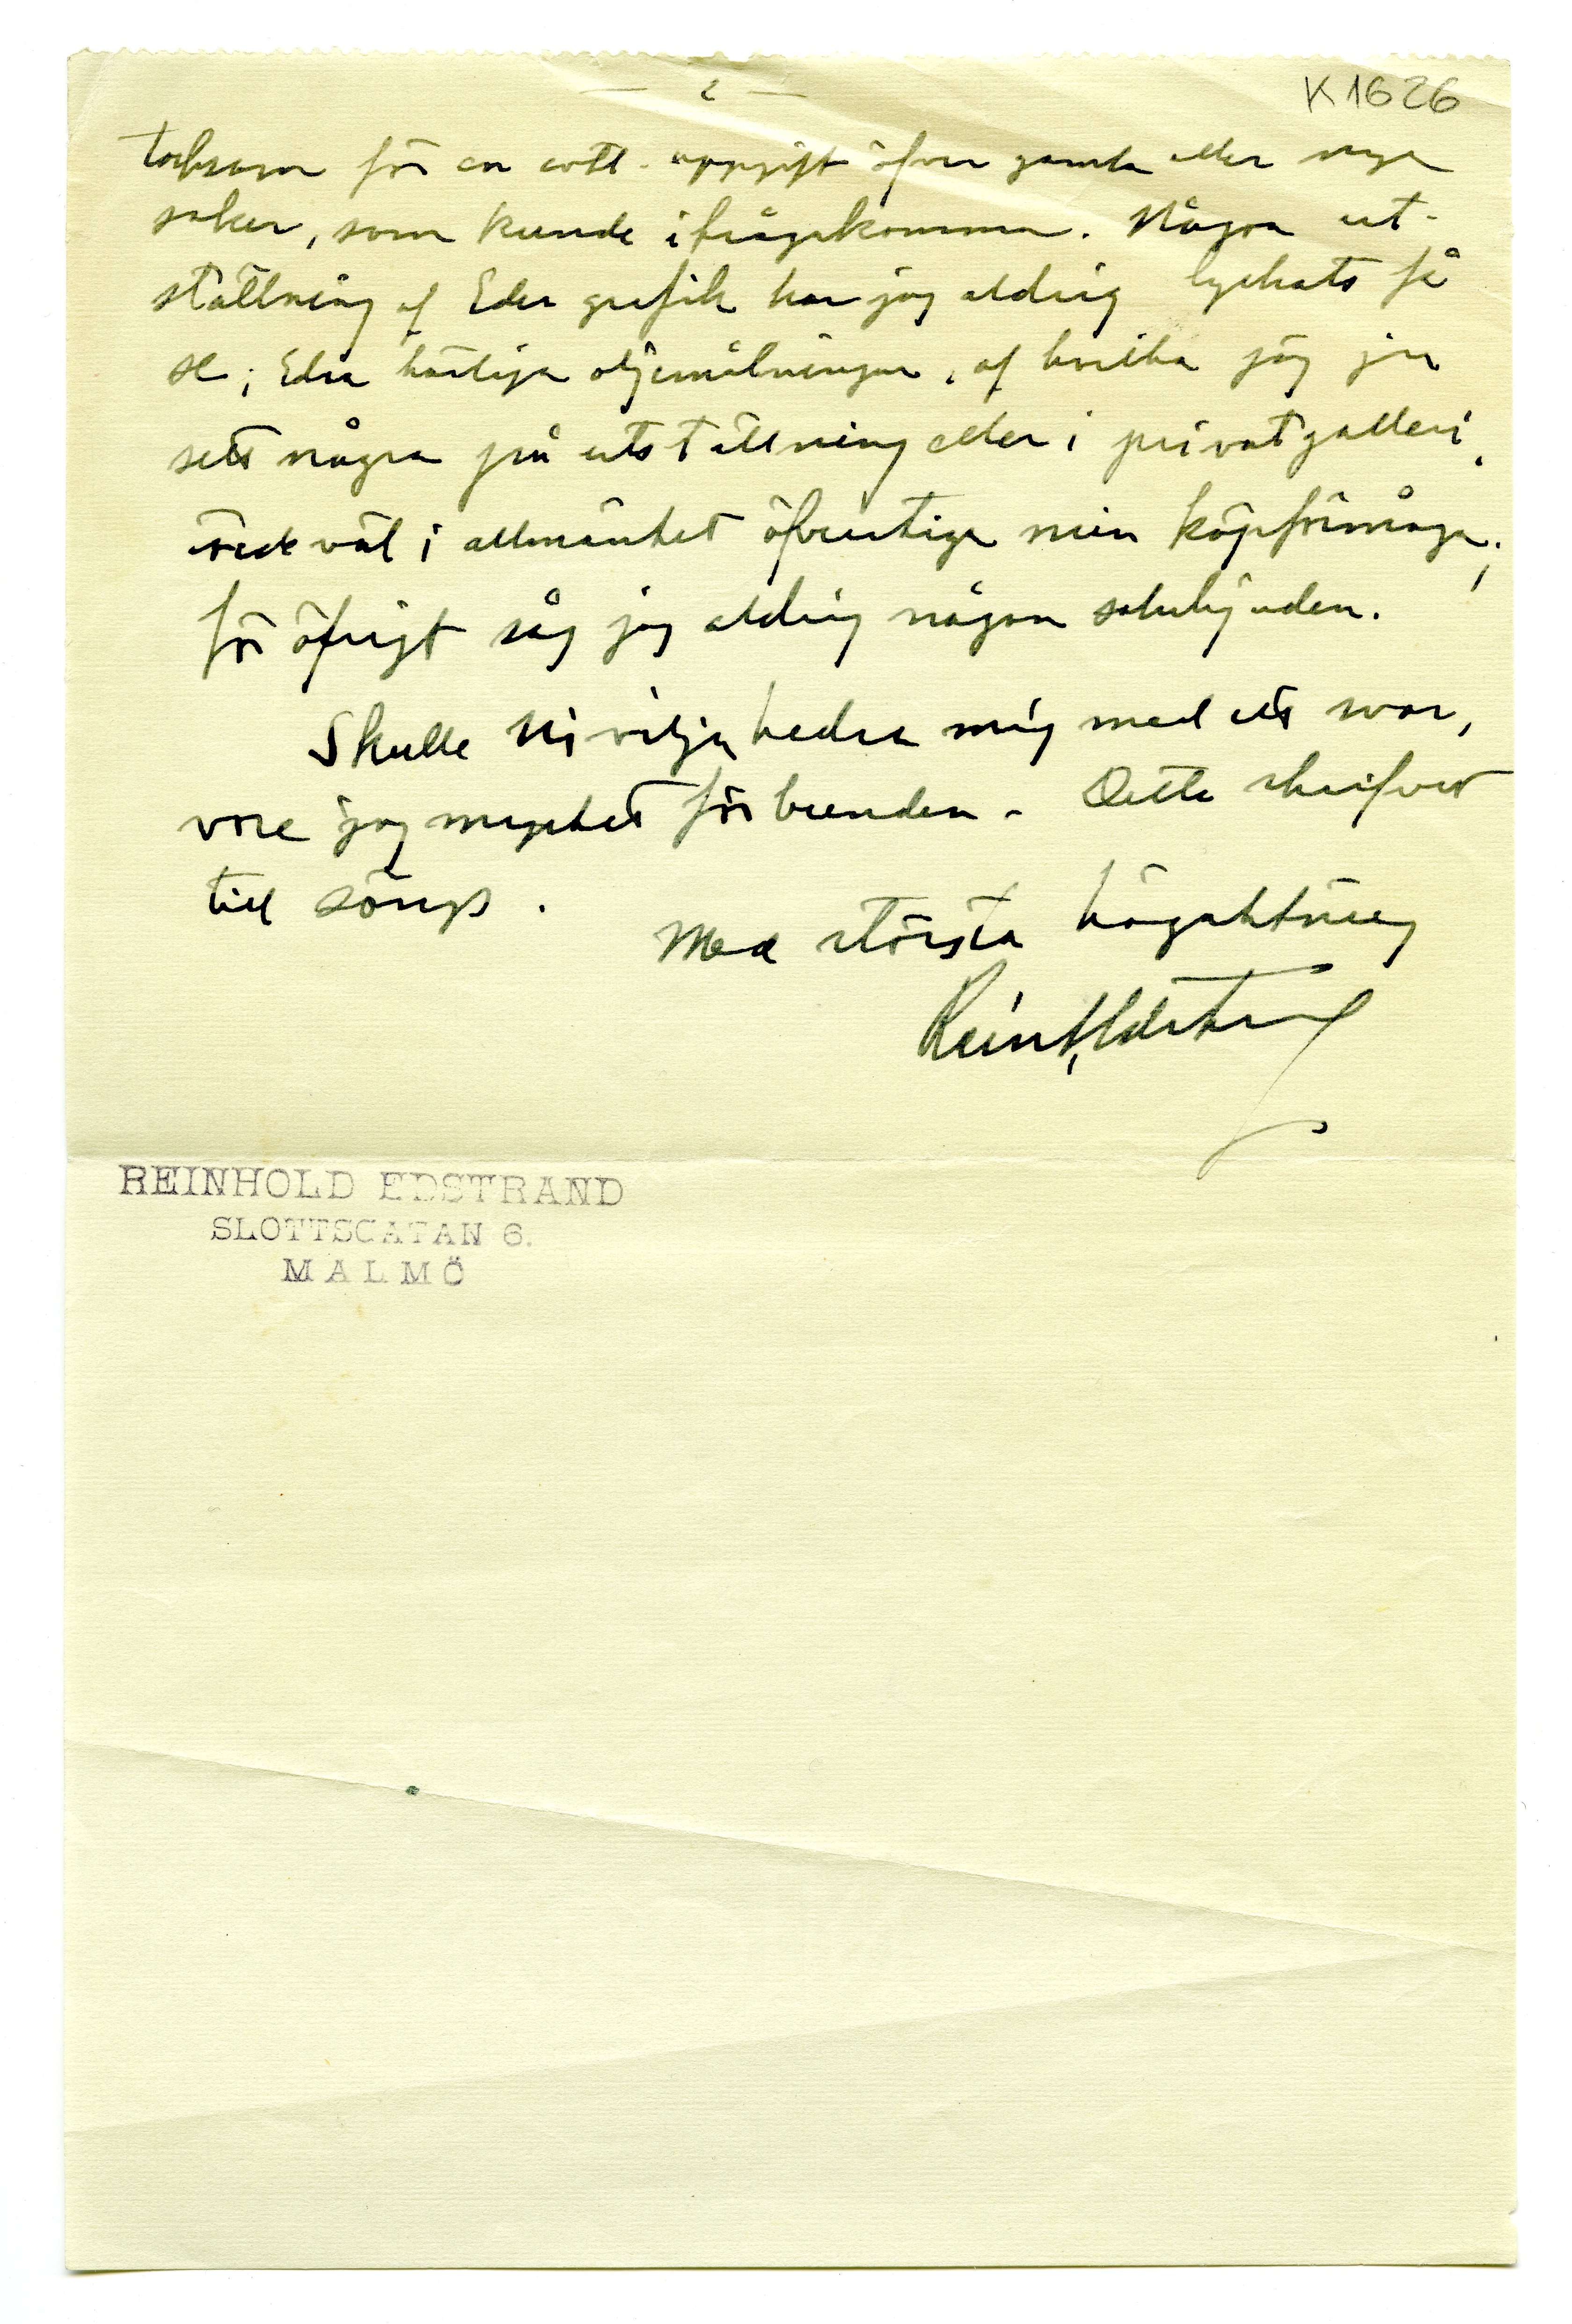 — 2 —
K 1626
tacksam för en evtl. uppgift öfver gamla eller nya
saker, som kunde ifrågakomma. Någon ut-
ställning af Eder grafik har jag aldrig lyckats få
se; Edra härliga oljemålningar, af hvilka jag ju
sett några på utställning eller i privatgalleri,
väl i allmänhet öfverstiga min köpförmåga;
för öfrigt såg jag aldrig någon saluhjuden.
Skulle Ni vilja hedra mig med ett svar,
vore jag mycket förbunden. Detta skrifvet
till sängs.
Med största högaktning
Reinh. Edstrand
REINHOLD EDSTRAND
SLOTTSGATAN 6.
MALMÖ